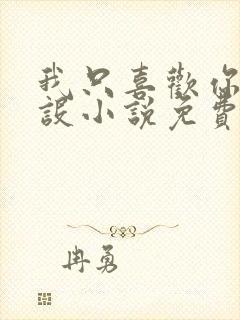 我只喜歡你
設小說免費
冉勇